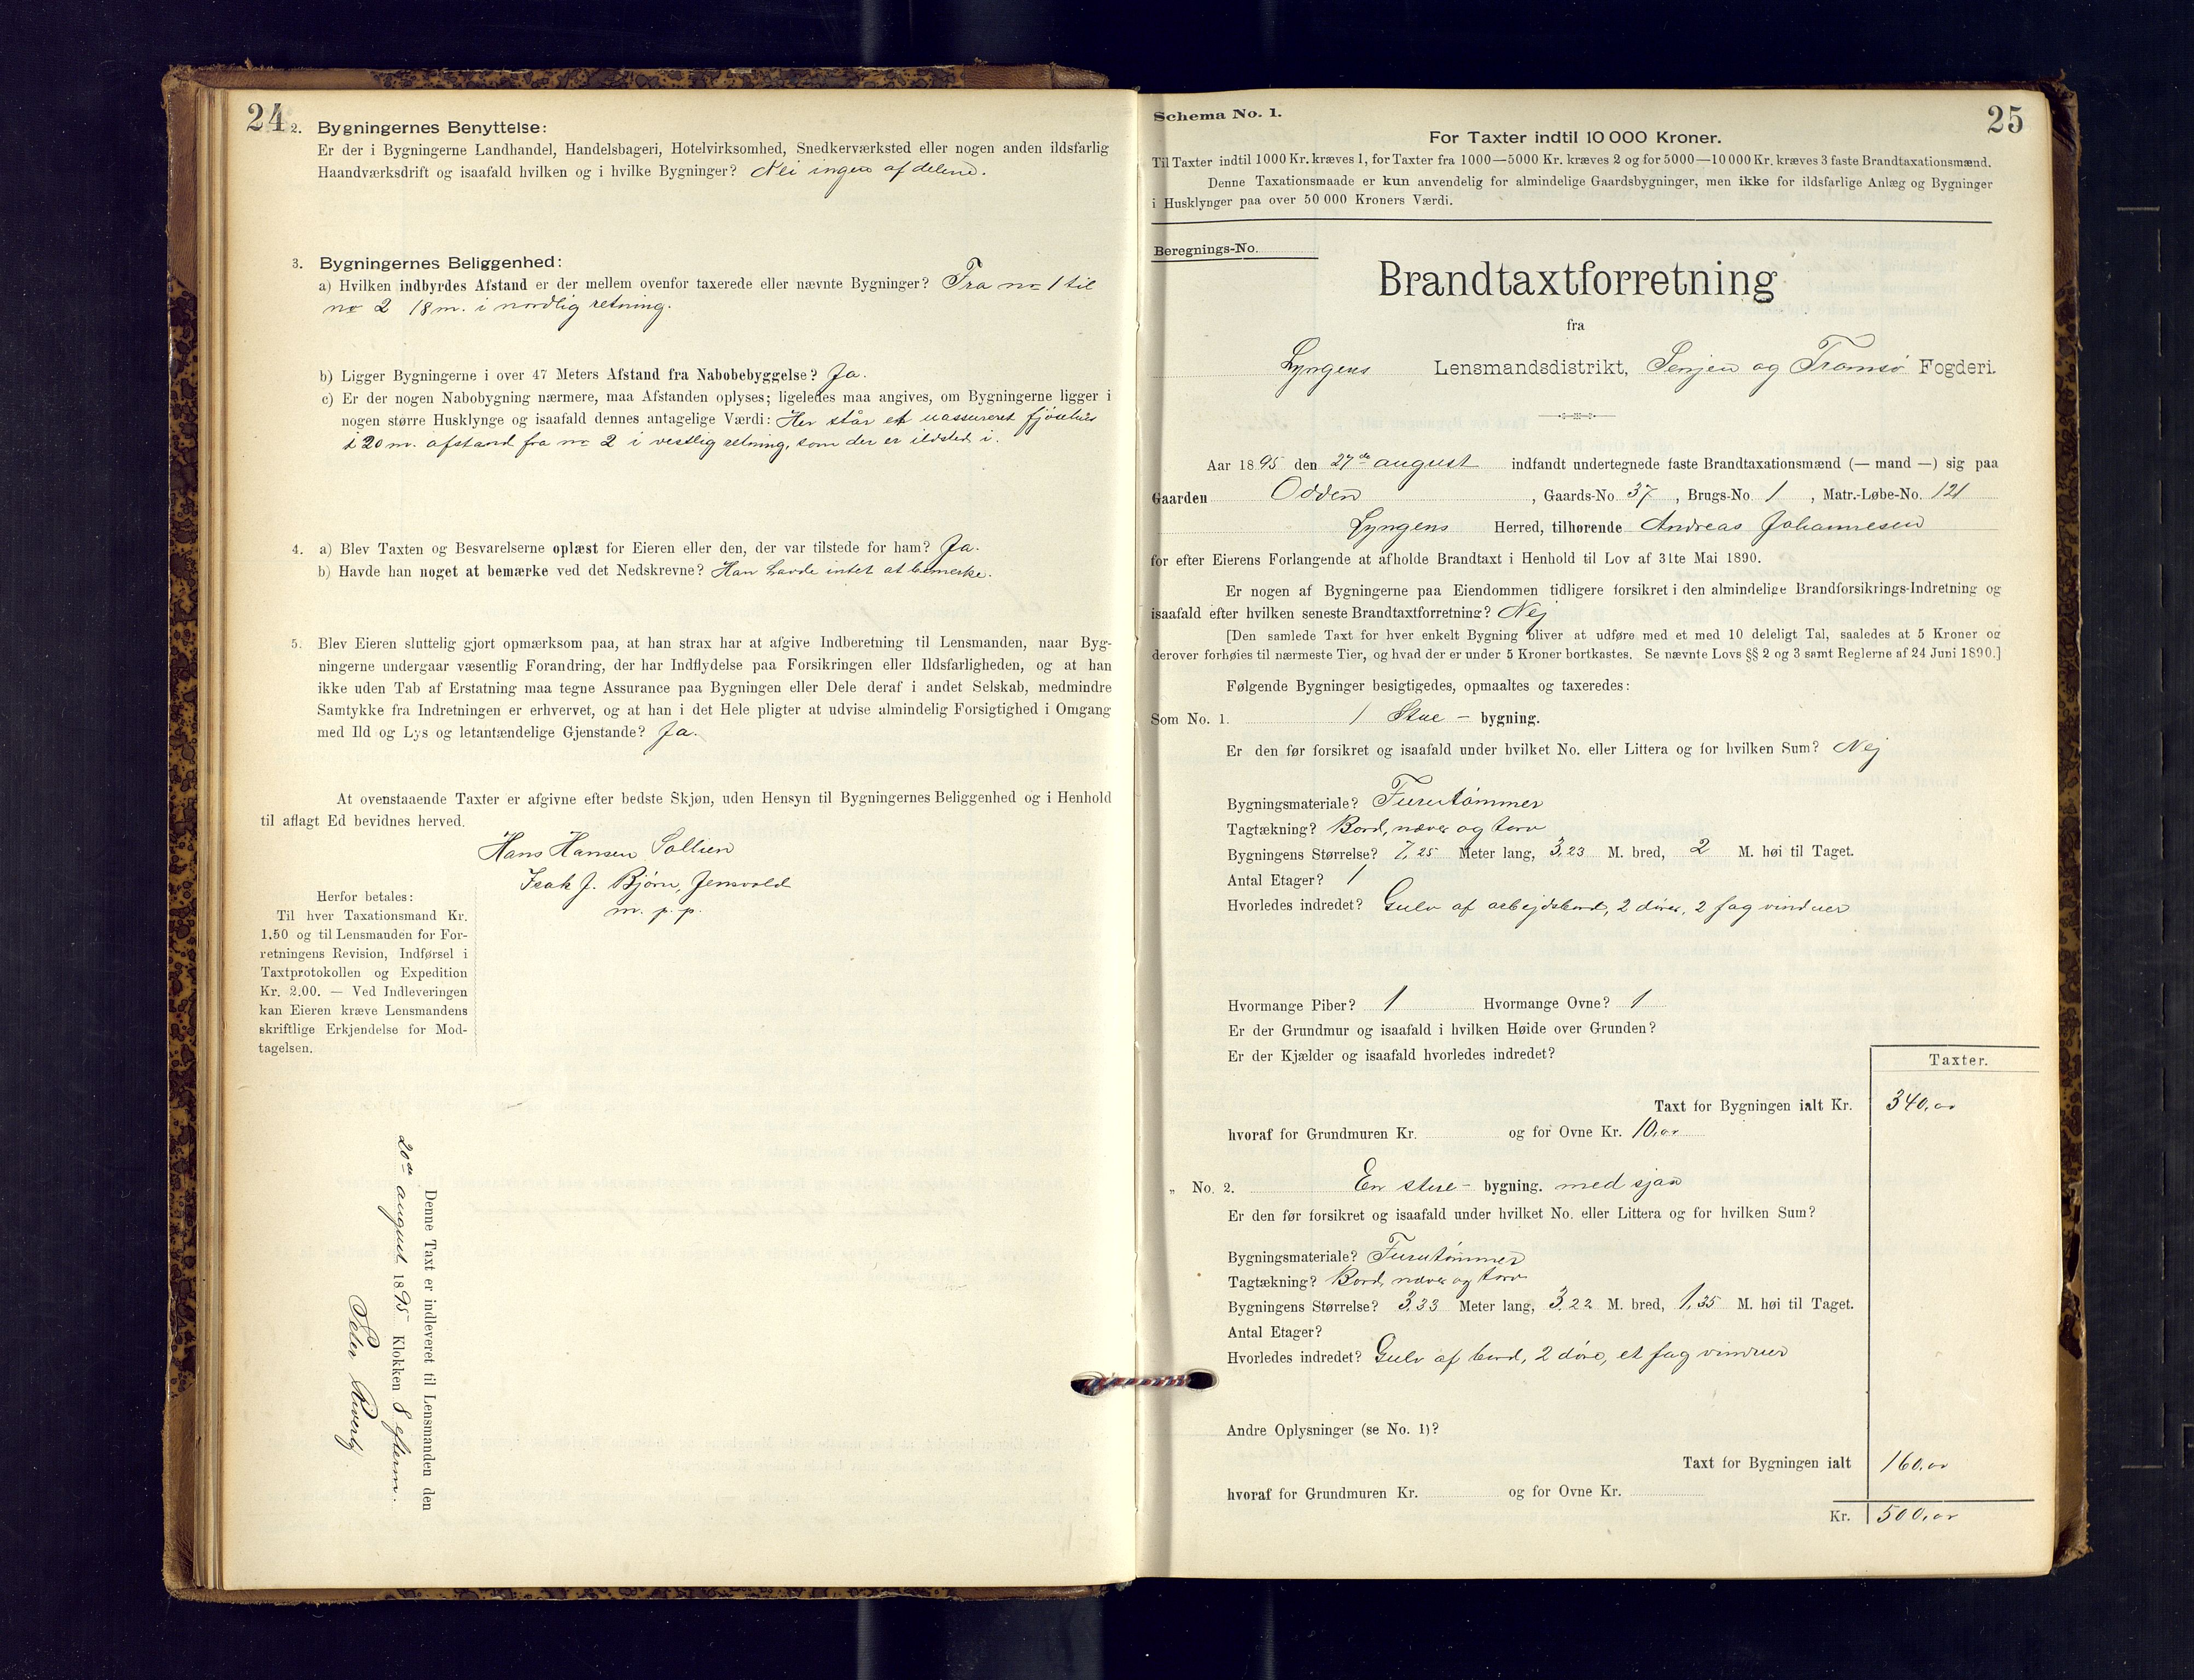 24
2. Bygningernes Benyttelse:
Er der i Bygningerne Landhandel, Handelsbageri, Hotelvirksomhed, Snedkerværksted eller nogen anden ildsfarlig
Haandværksdrift og isaafald hvilken og i hvilke Bygninger? Nei ingen af delene.
3. Bygningernes Beliggenhed:
a) Hvilken indbyrdes Afstand er der mellem ovenfor taxerede eller nævnte Bygninger? Fra no 1 til
no 2 18 m. i nordlig retning.
b) Ligger Bygningerne i over 47 Meters Afstand fra Nabobebyggelse? Ja.
c) Er der nogen Nabobygning nærmere, maa Afstanden oplyses; ligeledes maa angives, om Bygningerne ligger i
nogen større Husklynge og isaafald dennes antagelige Værdi: Her står et uassureret fjøsehus
i 20 m. afstand fra no 2 i vestlig retning, som der er ildsted i.
4. a) Blev Taxten og Besvarelserne oplæst for Eieren eller den, der var tilstede for ham? Ja.
b) Havde han noget at bemærke ved det Nedskrevne? Han havde intet at bemerke.
5. Blev Eieren sluttelig gjort opmærksom paa, at han strax har at afgive Indberetning til Lensmanden, naar Byg-
ningerne undergaar væsentlig Forandring, der har Indflydelse paa Forsikringen eller Ildsfarligheden, og at han
ikke uden Tab af Erstatning maa tegne Assurance paa Bygningen eller Dele deraf i andet Selskab, medmindre
Samtykke fra Indretningen er erhvervet, og at han i det Hele pligter at udvise almindelig Forsigtighed i Omgang
med Ild og Lys og letantændelige Gjenstande? Ja.
At ovenstaaende Taxter er afgivne efter bedste Skjøn, uden Hensyn til Bygningernes Beliggenhed og i Henhold
til aflagt Ed bevidnes herved.
Hans Hansen Sollien
Isak J. Bjørn, Jensvold
m. p. p.
Herfor betales:
Til hver Taxationsmand Kr.
1.50 og til Lensmanden for For-
retningens Revision, Indførsel i
Taxtprotokollen og Expedition
Kr. 2.00. — Ved Indleveringen
kan Eieren kræve Lensmandens
skriftlige Erkjendelse for Mod-
tagelsen.
Denne Taxt er indleveret til Lensmanden den
20de august 1895 Klokken 8 efterm.
Peder
Schema No. 1.
25
For Taxter indtil 10 000 Kroner.
Til Taxter indtil 1000 Kr. kræves 1, for Taxter fra 1000—5000 Kr. kræves 2 og for 5000—10 000 Kr. kræves 3 faste Brandtaxationsmænd.
Denne Taxationsmaade er kun anvendelig for almindelige Gaardsbygninger, men ikke for ildsfarlige Anlæg og Bygninger
i Husklynger paa over 50 000 Kroners Værdi.
Beregnings-No.
Brandtaxtforretning
fra
Lyngens Lensmandsdistrikt, Senjen og Tromsø Fogderi.
Aar 1895 den 27de august indfandt undertegnede faste Brandtaxationsmænd (— mand —) sig paa
Gaarden Odden, Gaards-No. 37, Brugs-No. 1, Matr.-Løbe-No. 121
Lyngens Herred, tilhørende Andreas Johannesen
for efter Eierens Forlangende at afholde Brandtaxt i Henhold til Lov af 31te Mai 1890.
Er nogen af Bygningerne paa Eiendommen tidligere forsikret i den almindelige Brandforsikrings-Indretning og
isaafald efter hvilken seneste Brandtaxtforretning? Nej
[Den samlede Taxt for hver enkelt Bygning bliver at udføre med et med 10 deleligt Tal, saaledes at 5 Kroner og
derover forhøies til nærmeste Tier, og hvad der er under 5 Kroner bortkastes. Se nævnte Lovs §§ 2 og 3 samt Reglerne af 24 Juni 1890.]
Følgende Bygninger besigtigedes, opmaaltes og taxeredes:
Som No. 1. 1 Stue - bygning.
Er den før forsikret og isaafald under hvilket No. eller Littera og for hvilken Sum? Nej
Bygningsmateriale? Furutømmer
Tagtækning? Bord, næver og torv
Bygningens Størrelse? 7,25 Meter lang, 3,23 M. bred, 2 M. høi til Taget.
Antal Etager? 1
Hvorledes indredet? Gulv af arbejdsbord, 2 dører, 2 fag vinduer
Hvormange Piber? 1 Hvormange Ovne? 1
Er der Grundmur og isaafald i hvilken Høide over Grunden?
Er der Kjælder og isaafald hvorledes indredet?
Taxter.
Taxt for Bygningen ialt Kr. 340,00
hvoraf for Grundmuren Kr. og for Ovne Kr. 10,00
„ No. 2. En stue - bygning. med sjaa
Er den før forsikret og isaafald under hvilket No. eller Littera og for hvilken Sum?
Bygningsmateriale? Furutømmer
Tagtækning? Bord, næver og torv
Bygningens Størrelse? 3,33 Meter lang, 3,22 M. bred, 1,35 M. høi til Taget.
Antal Etager?
Hvorledes indredet? Gulv af bord, 2 døre, et fag vinduer
Andre Oplysninger (se No. 1)?
Taxt for Bygningen ialt 160,00
hvoraf for Grundmuren Kr. og for Ovne Kr.
Kr. 500,00